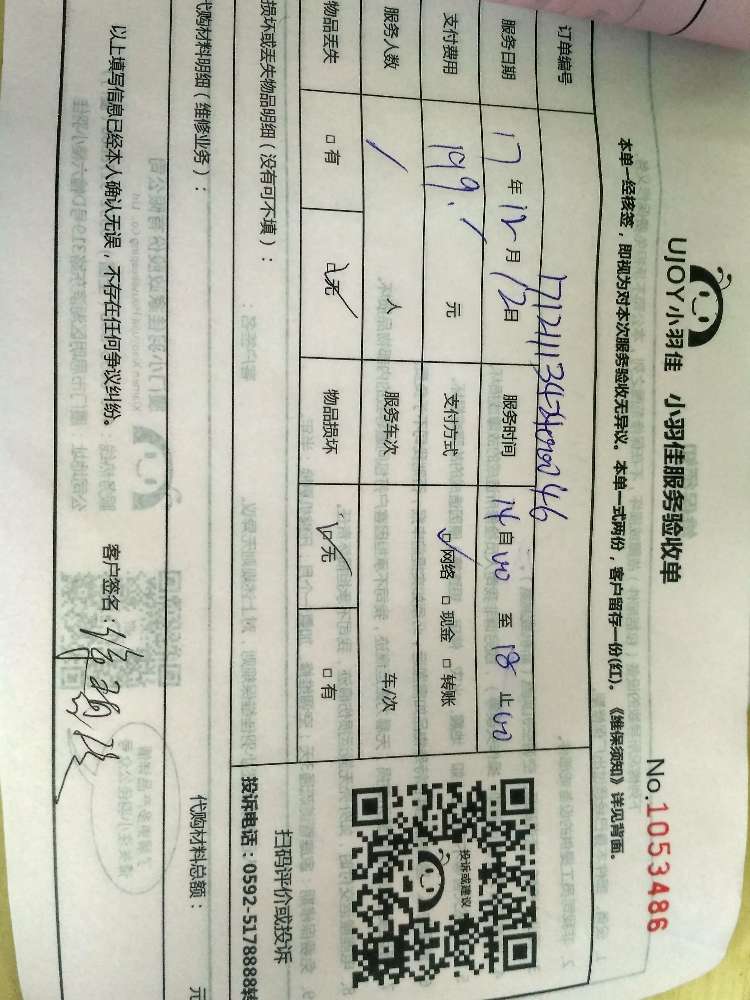 UJOY小羽佳 小羽佳服务验收单
No.1053486
本单一经核签，即视为对本次服务验收无异议。本单一式两份，客户留存一份(红)。《维保须知》详见背面。
订单编号
服务日期 17年12月12日 服务时间 14自00至18止00
支付费用 199.1元 支付方式 网络 现金 转账
服务人数 / 人 服务车次 车/次
物品丢失 有 无 物品损坏 无 有
投诉或建议
扫码评价或投诉
投诉电话：0592-5178888转
损坏或丢失物品明细（没有可不填）：
代购材料明细（维修业务）：
代购材料总额： 元
以上填写信息已经本人确认无误，不存在任何争议纠纷。 客户签名：